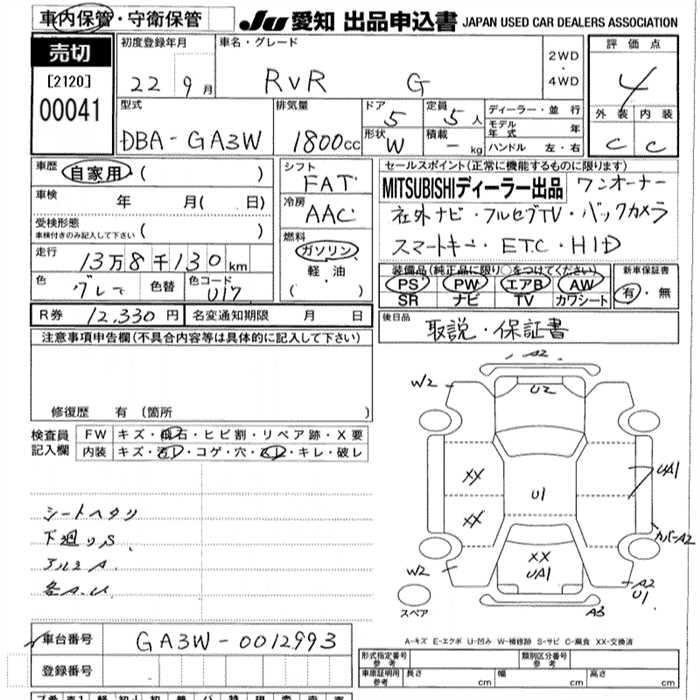 車内保管・守衛保管
JU 愛知 出品申込書 JAPAN USED CAR DEALERS ASSOCIATION
売切
[2120]
00041
初度登録年月
22 9月
車名・グレード
RVR G
2WD
・
4WD
評価点
4
外装 内装
C C
型式
DBA-GA3W
排気量
1800cc
ドア
5
形状
W
定員
5人
積載
- kg
ディーラー・並行
モデル年式 年
ハンドル 左・右
車歴
自家用 ( )
車検 年 月( 日)
受検形態
車検付きのみ記入して下さい ( )
走行
13万8千130km
色
グレー
色替
色コード
U17
シフト
FAT
冷房
AAC
燃料
ガソリン
・
軽油
・
( )
セールスポイント(正常に機能するものに限ります)
MITSUBISHIディーラー出品 ワンオーナー
社外ナビ・フルセグTV・バックカメラ
スマートキー・ETC・HID
装備品(純正品に限り○をつけてください)
PS PW エアB AW
SR ナビ TV カワシート
新車保証書
有・無
R券 12,330円 名変通知期限 月 日
後日品
取説・保証書
注意事項申告欄(不具合内容等は具体的に記入して下さい)
修復歴 有 (箇所 )
検査員
記入欄
FW キズ・飛石・ヒビ割・リペア跡・X要
内装 キズ・汚レ・コゲ・穴・スレ・キレ・破レ
シートヘタリ
下廻りS.
アルミA.
各A.U.
A2
W2
U2
XX
UA1
U1
XX
カバーA2
XX
UA1
W2
A2
U1
スペア
A3
A-キズ E-エクボ U-凹み W-補修跡 S-サビ C-腐食 XX-交換済
車台番号 GA3W-0012993
登録番号
形式指定番号
参考
類別区分番号
参考
車庫証明用
参考
長さ cm 幅 cm 高さ cm